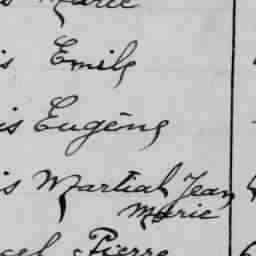 Marie
is Emile
is Eugène
is Martial Jean
Marie
cel Pierre